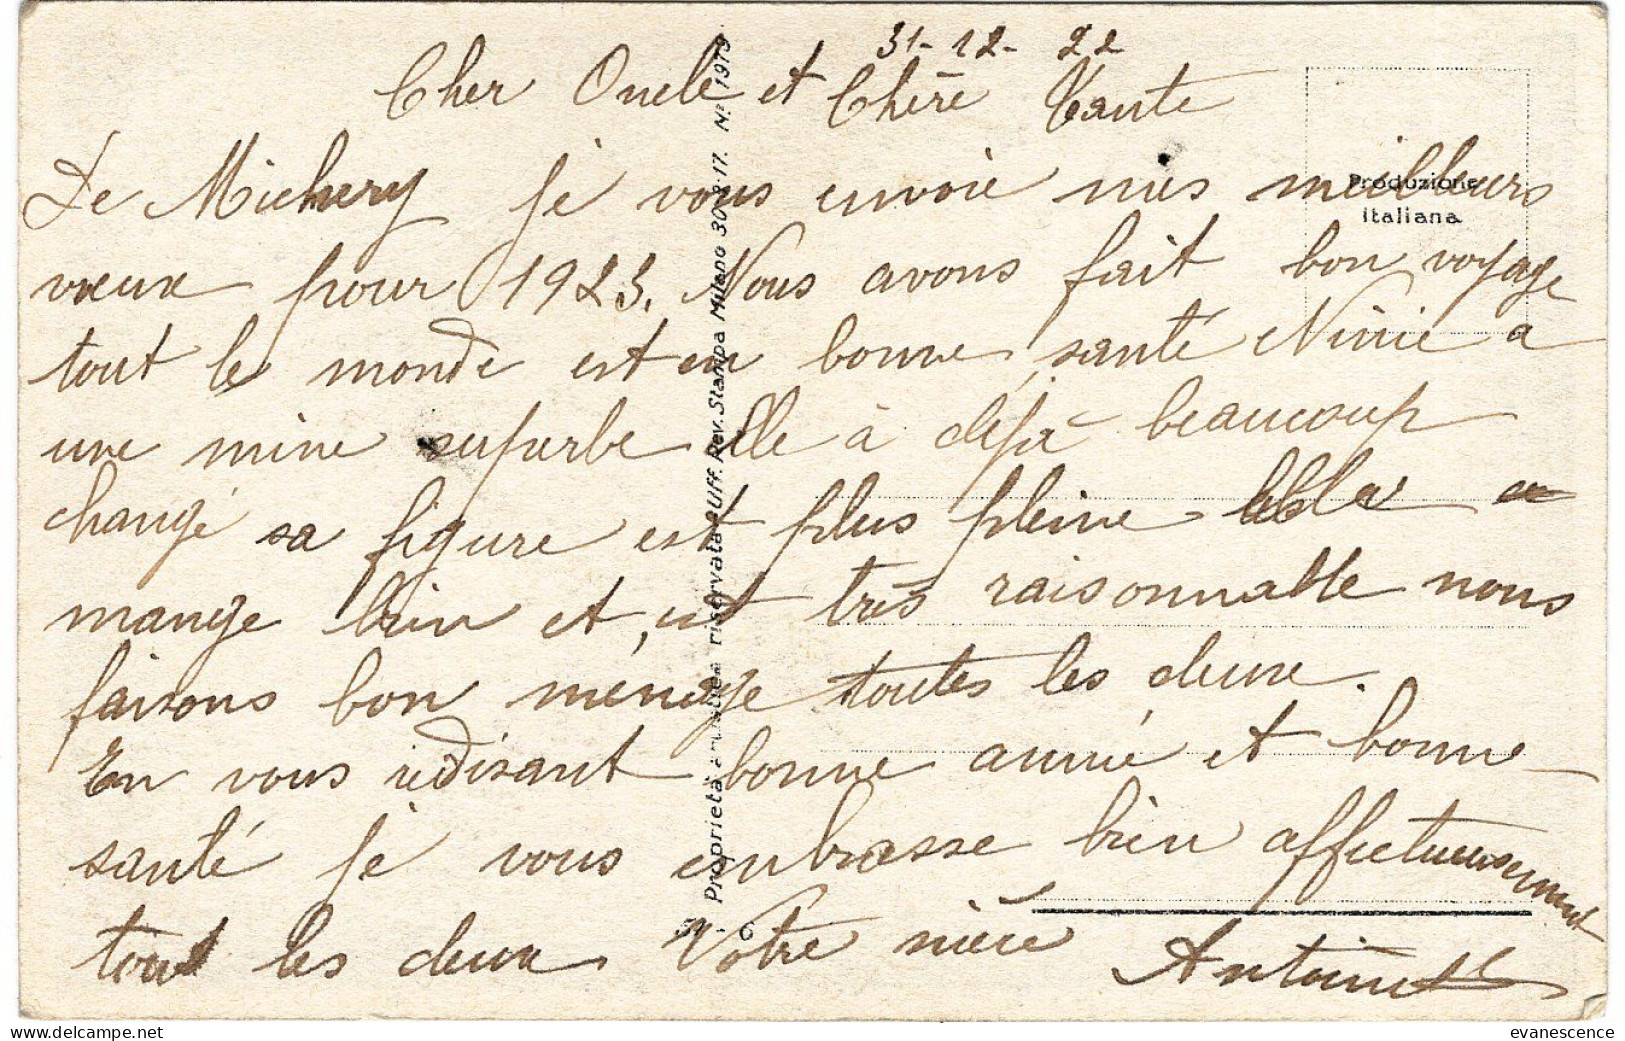 31-12-22
Cher Oncle et Chère Tante
De Michery je vous envoie mes meilleurs
vœux pour 1923. Nous avons fait bon voyage
tout le monde est en bonne santé Ninie a
une mine superbe elle à déjà beaucoup
changé sa figure est plus pleine elle
mange bien et est très raisonnable nous
faisons bon ménage toutes les deux.
En vous redisant bonne année et bonne
santé je vous embrasse bien affectueusement
tout les deux Votre nièce Antoinette
Produzione
Italiana
Proprietà artistica riservata Uff. Rev. Stampa Milano 30-8-17. N.º 1979
evanescence